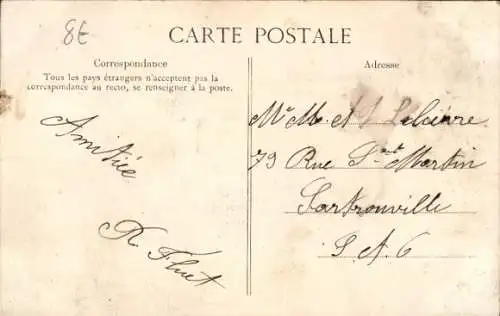 8€
CARTE POSTALE
Correspondance
Tous les pays étrangers n'acceptent pas la
correspondance au recto, se renseigner à la poste.
Amitiée
R. Fluet
Adresse
Mr M. et J Lelièvre
79 Rue St Martin
Sartrouville
S. et O